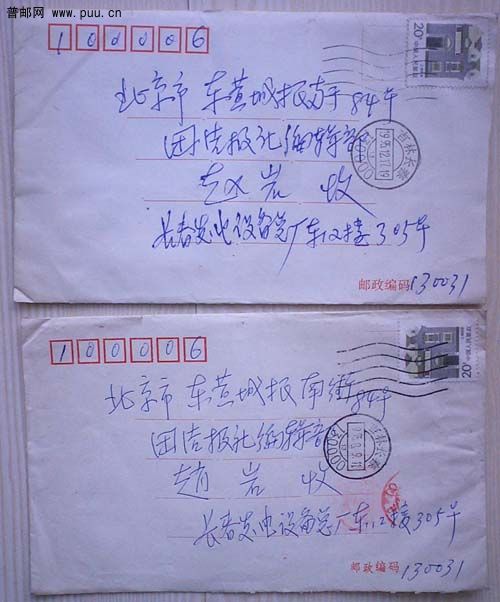 普邮网 www.puu.cn
100006
20分 中国人民邮政
北京市 东黄城根南街84号
团结报社编辑部
吉林长春
赵岩 收
长春发电设备总厂东12楼305号
邮政编码 130031
100006
20分 中国人民邮政
北京市 东黄城根南街84号
团结报社编辑部
吉林长春
赵岩 收
长春发电设备总厂东12楼305号
邮政编码 130031